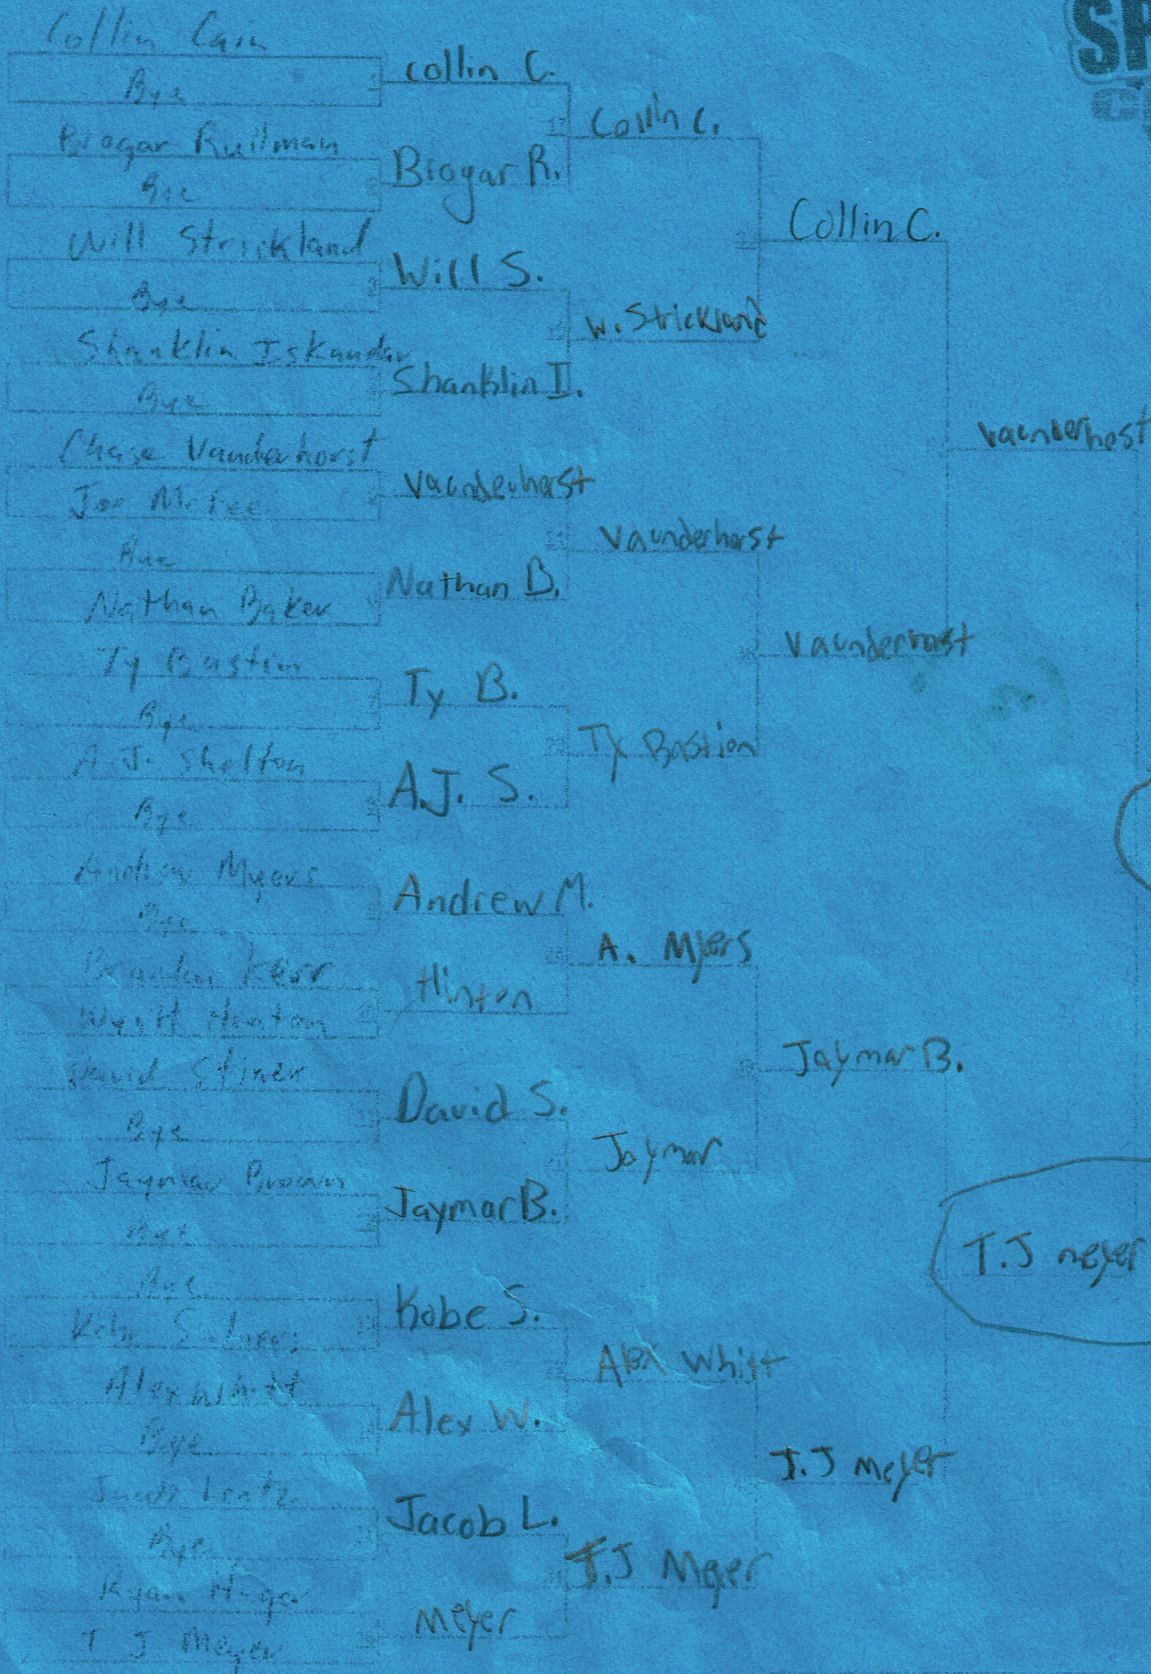 Collin Cain
Bye
Brogar Ruilman
Bye
Will Strickland
Bye
Shanklin Iskandar
Bye
Chase Vaunderhorst
Joe McFee
Bye
Nathan Baker
Ty Bastin
Bye
A.J. Shelton
Bye
Andrew Myers
Bye
Kerr
Wyatt Hinton
David Stiner
Bye
Jaymar Brown
Bye
Bye
Kobe
Alex Whitt
Bye
Jacob Lentz
Bye
Ryan Hager
T J Meyer
Collin C.
Brogar R.
Will S.
Shanklin I.
Vaunderhorst
Nathan B.
Ty B.
A.J. S.
Andrew M.
Hinton
David S.
Jaymar B.
Kobe S.
Alex W.
Jacob L.
Meyer
Collin C.
W. Strickland
Vaunderhorst
Ty Bastion
A. Myers
Jaymar
Alex Whitt
T.J Meyer
Collin C.
Vaunderhorst
Jaymar B.
T.J Meyer
Vaunderhost
T.J Meyer
SP